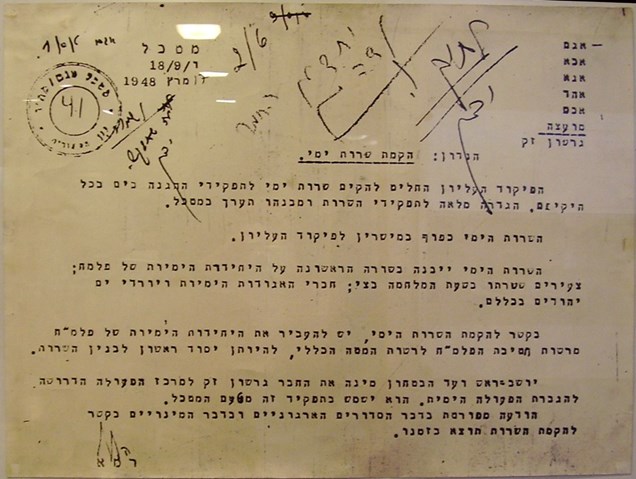 מטכ"ל
ו/18/9
מרץ 1948
41
2/6
אגם
אכא
אנא
אהד
אכם
מועצה
גרשון זק
הנדון: הקמת שרות ימי.
הפיקוד העליון החליט להקים שרות ימי לתפקידי ההגנה בים בכל
היקפם. הגדרה מלאה לתפקידי השרות ומבנהו תערך במטכל.
השרות הימי כפוף במישרין לפיקוד העליון.
השרות הימי ייבנה בשורה הראשונה על היחידות הימיות של פלמח;
צעירים ששרתו בשעת המלחמה בצי; חברי האגודות הימיות ויורדי ים
יהודים בכללם.
בקשר להקמת השרות הימי, יש להעביר את היחידות הימיות של פלמ"ח
מרשות חטיבת הפלמ"ח לרשות המטה הכללי, להיותן יסוד ראשון לבנין השרות.
יושב-ראש ועד הבטחון מינה את החבר גרשון זק למרכז הפעולה הדרושה
להגברת הפעולה הימית. הוא ישמש בתפקיד זה מטעם המטכל.
הודעה מפורטת בדבר הסדורים הארגוניים ובדבר המינויים בקשר
להקמת השרות תוצא בזמנו.
ר מ א